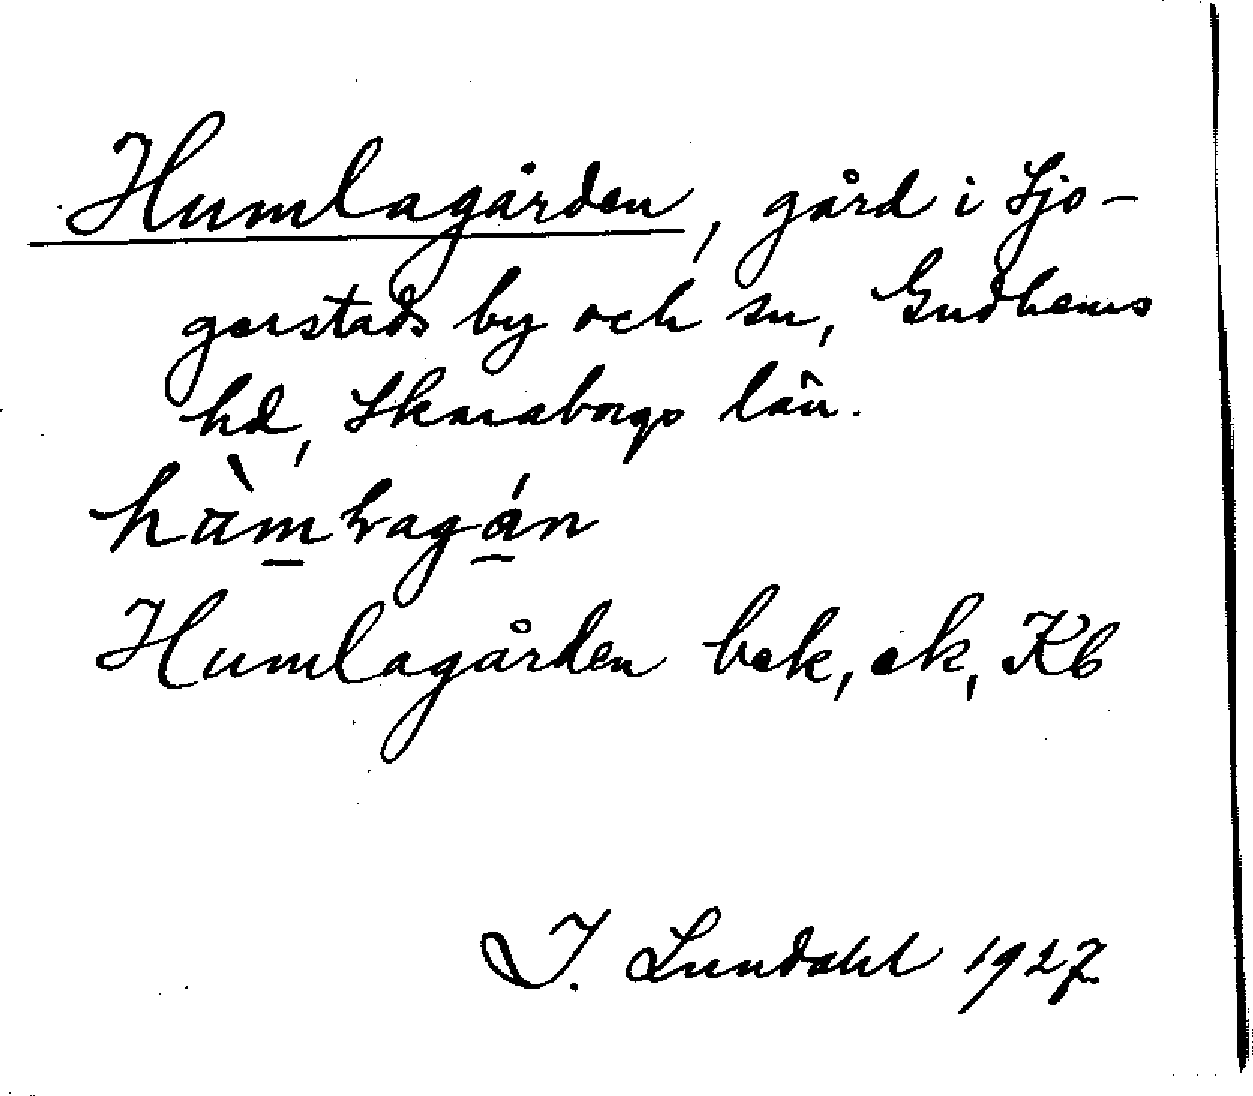 Humlagården, gård i Sjo-
gerstads by och sn, Gudhems
hd, Skaraborgs län.
Humlagården bok, ek, Kb
I. Lundahl 1927